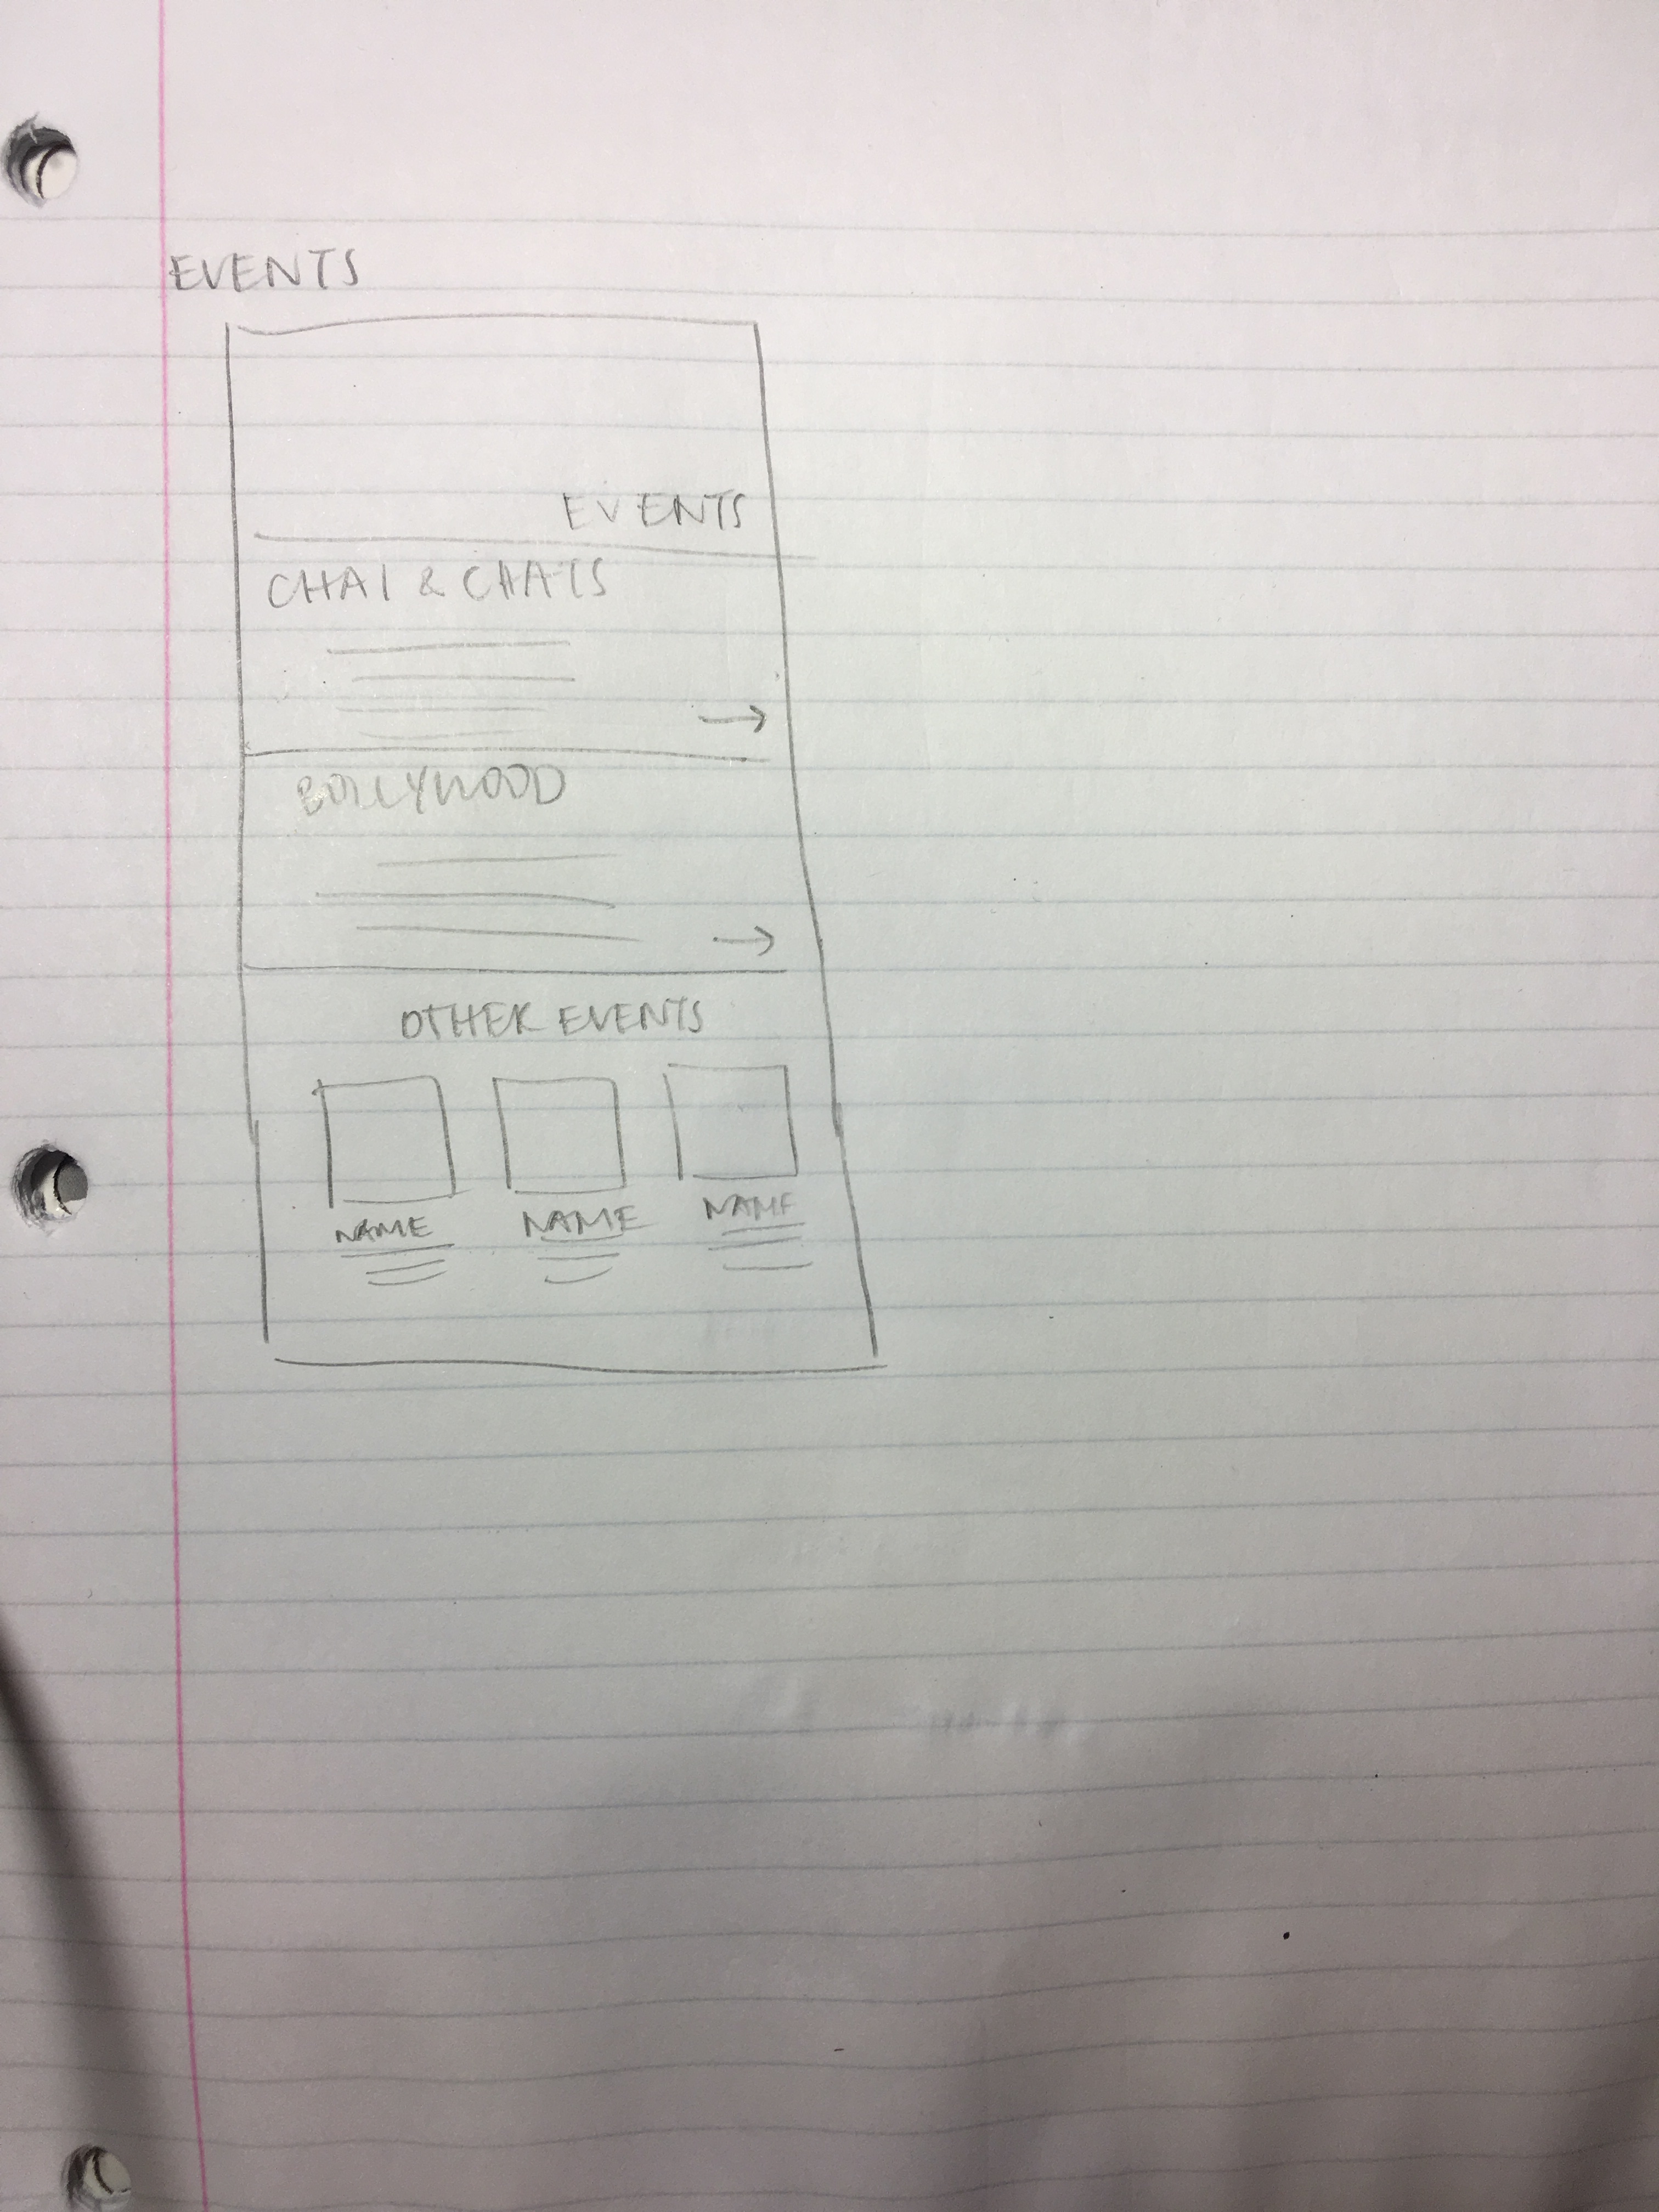 EVENTS
EVENTS
CHAI & CHATS
BOLLYWOOD
OTHER EVENTS
NAME NAME NAME